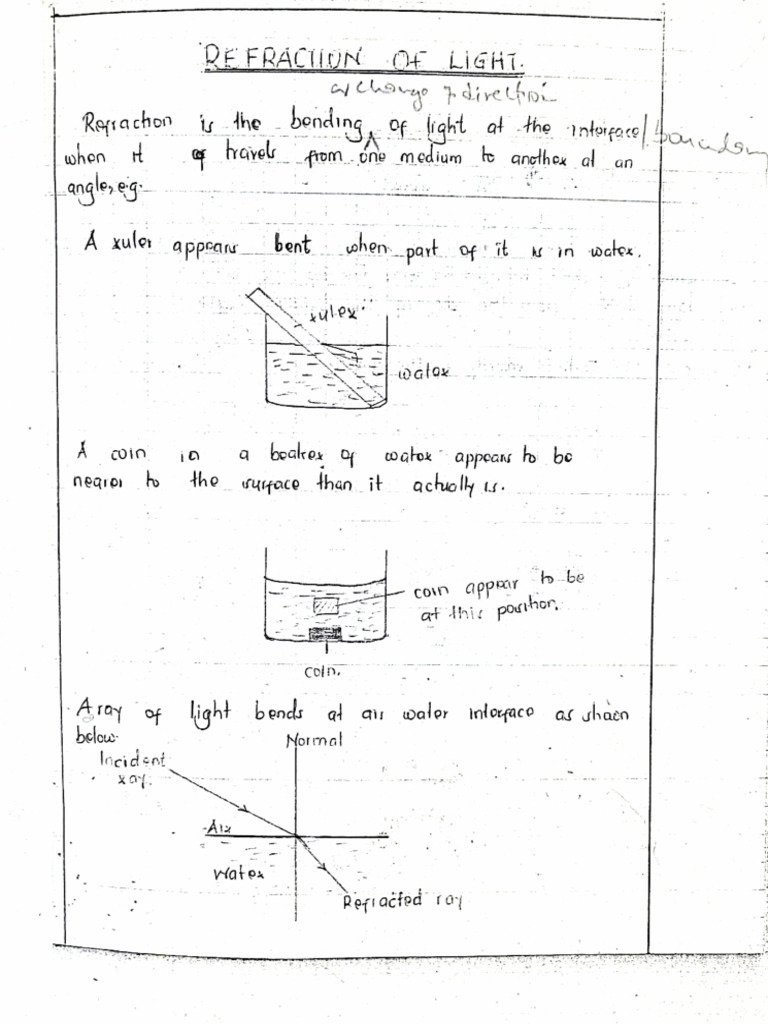 REFRACTION OF LIGHT.
or change of direction
Refraction is the bending ^ of light at the interface / boundary
when it travels from one medium to another at an
angle, e.g.
A ruler appears bent when part of it is in water.
ruler
water
A coin in a beaker of water appears to be
nearer to the surface than it actually is.
coin appear to be
at this position.
coin.
A ray of light bends at air water interface as shown
below.
Normal
Incident
ray.
Air
Water
Refracted ray